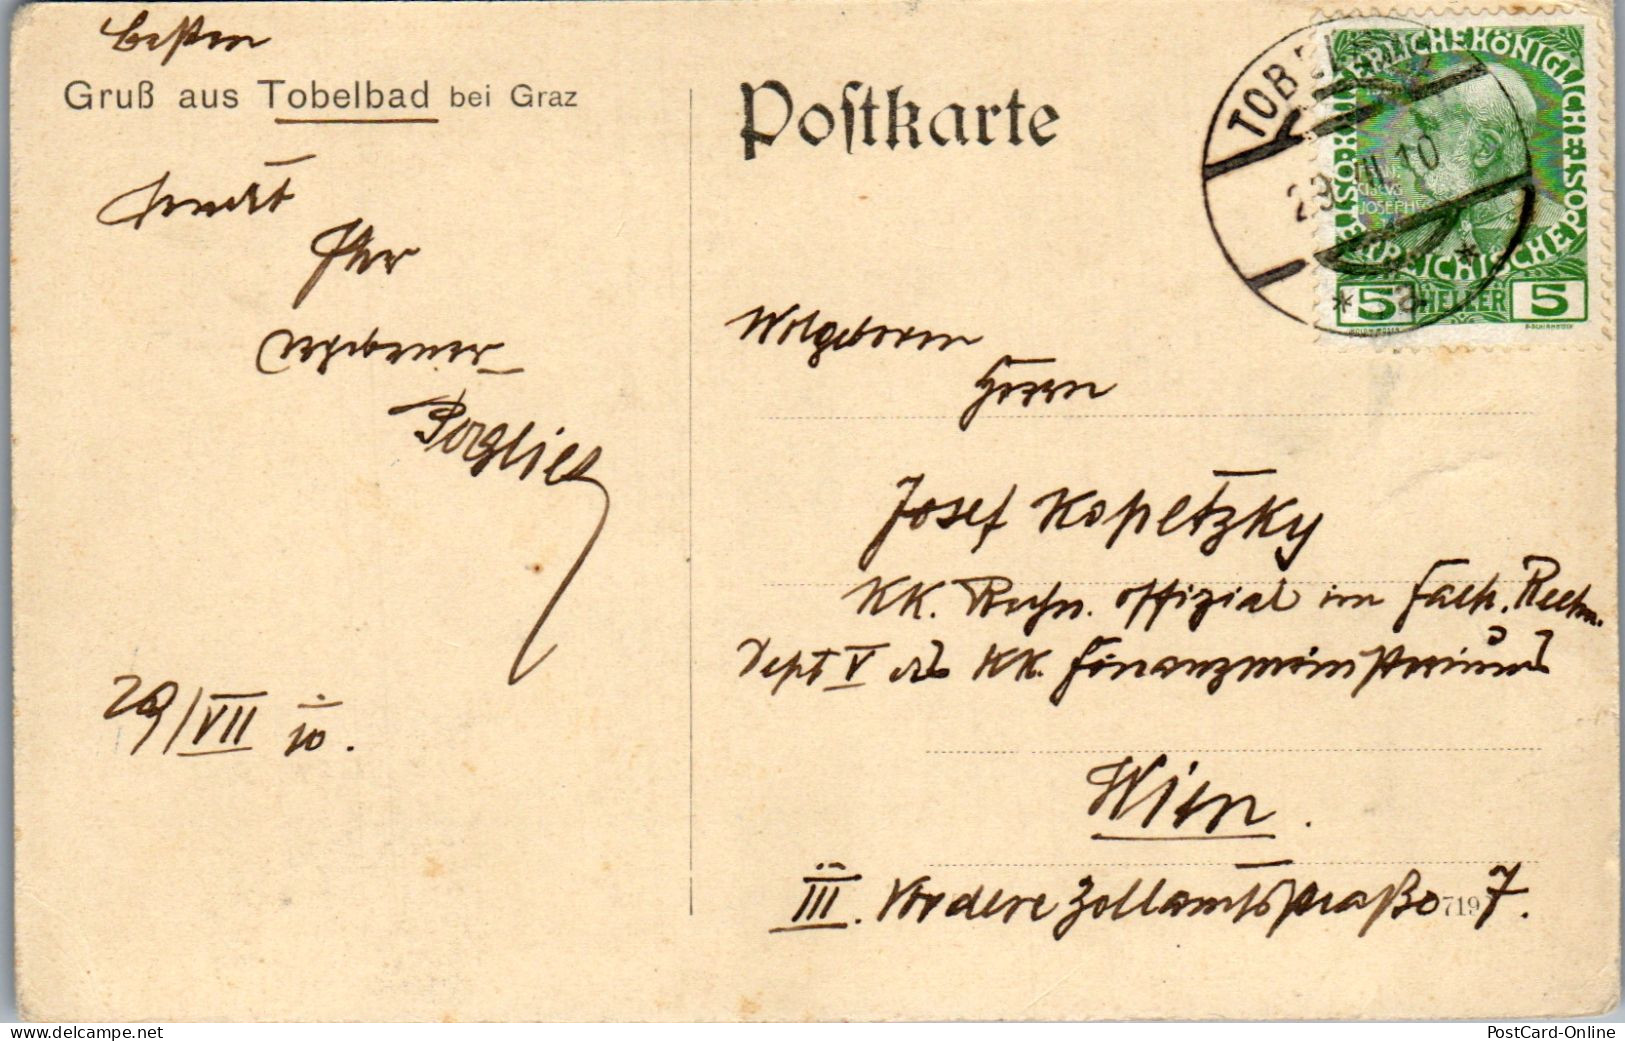 besten
Gruß aus Tobelbad bei Graz
sendet
Ihr
ergebener
29/VII 10.
Postkarte
Wolgeboren
Herrn
Josef Kopetzky
KK. Rechn. Offizial im Fach. Rechn.
Dept V des KK. Finanzministeriums
Wien.
III. Vordere Zollamtsstraße 7.
719
TOBELBAD
29. VII. 10
* a *
KAISERLICHE KÖNIGLICHE ÖSTERREICHISCHE POST
FRANCISCVS
JOSEPHVS
5 HELLER 5
www.delcampe.net
PostCard-Online